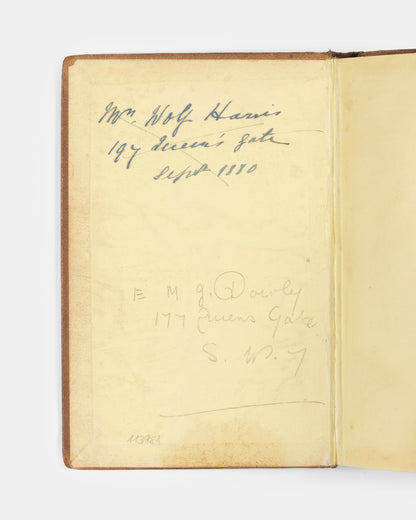 Mrs. Wolf Harris
197 Queen's gate
Sept 1880
E M G. Dowley
177 Queens Gate
S. W. 7